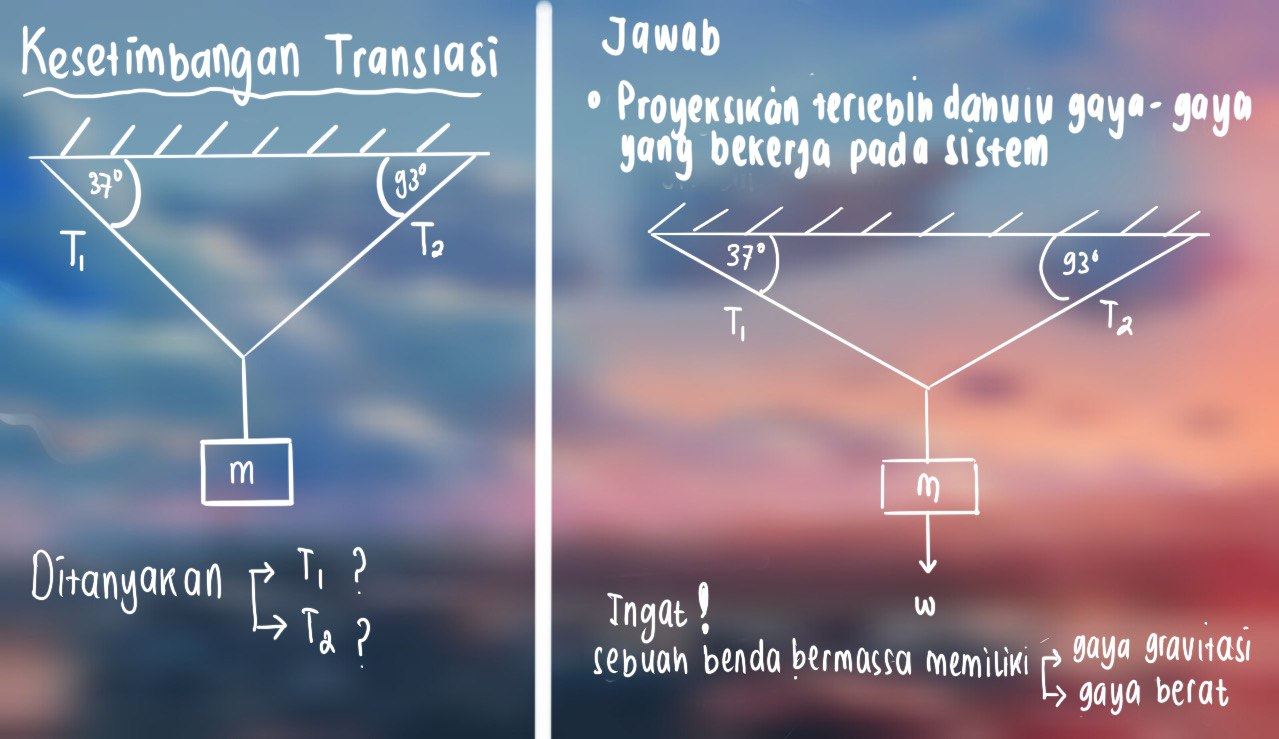 Kesetimbangan Translasi
37°
93°
T₁
T₂
m
Ditanyakan → T₁ ?
→ T₂ ?
Jawab
• Proyeksikan terlebih dahulu gaya-gaya
yang bekerja pada sistem
37°
93°
T₁
T₂
m
w
Ingat !
sebuah benda bermassa memiliki → gaya gravitasi
→ gaya berat